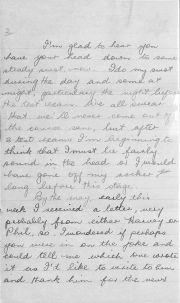 3
I'm glad to hear you
have your head down to some
steady just now. I do my most
during the day and some at
night, particularly the night before
the test exam. We all swear
that we'll never come out of
the course sane, but after
a test exam I'm beginning to
think that I must be fairly
sound in the head or I would
have gone off my rocker
long before this stage.
By the way early this
week I received a letter, very
probably from either Harvey or
Phil, so I wondered if perhaps
you were in on the joke and
could tell me which one wrote
it as I'd like to write to him
and thank him for the news